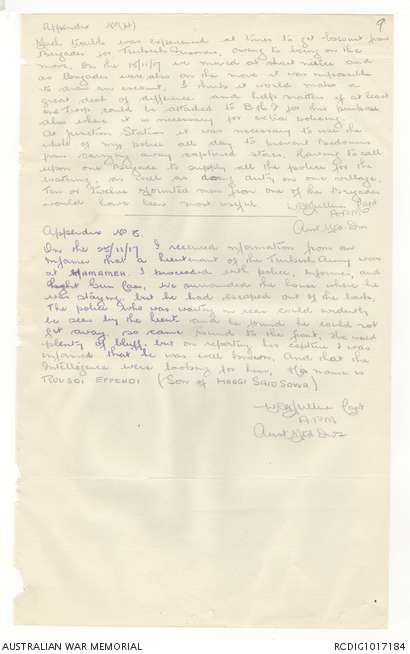 Appendix No (4)
9
Much trouble was experienced at times to get escort from
Brigades for Turkish Prisoners, owing to being on the
move. On the 18/11/17 we moved at short notice and
as Brigades were also on the move it was impossible
to draw an escort. I think it would make a
great deal of difference and help matters if at least
one Troop could be attached to D.H.Q for this purpose
also where it is necessary for extra policing.
At Junction Station it was necessary to use the
whole of my police all day to prevent Bedouins
from carrying away captured stores. Having to call
upon one Brigade to supply all the police for the
watering, as well as doing duty on one village.
Ten or Twelve Mounted men from one of the Brigades
would have been most useful.
Capt
A.P.M.
Aust Mtd Dvn
Appendix No 5
On the /11/17 I received information from an
informer that a lieutenant of the Turkish Army was
at HAMAMEH. I proceeded with police, informer, and
Light Gun Car, we surrounded the house where he
was staying, but he had escaped out of the back.
The police who was waiting in rear could evidently
be seen by the lieut and he found he could not
get away, so came round to the front. He used
plenty of bluff, but on reporting his capture I was
informed that he was well known, and that the
Intelligence were looking for him, His name is
EFFENDI (Son of HAGGI SAID )
Capt
A.P.M
Aust Mtd Dvn
AUSTRALIAN WAR MEMORIAL
RCDIG1017184